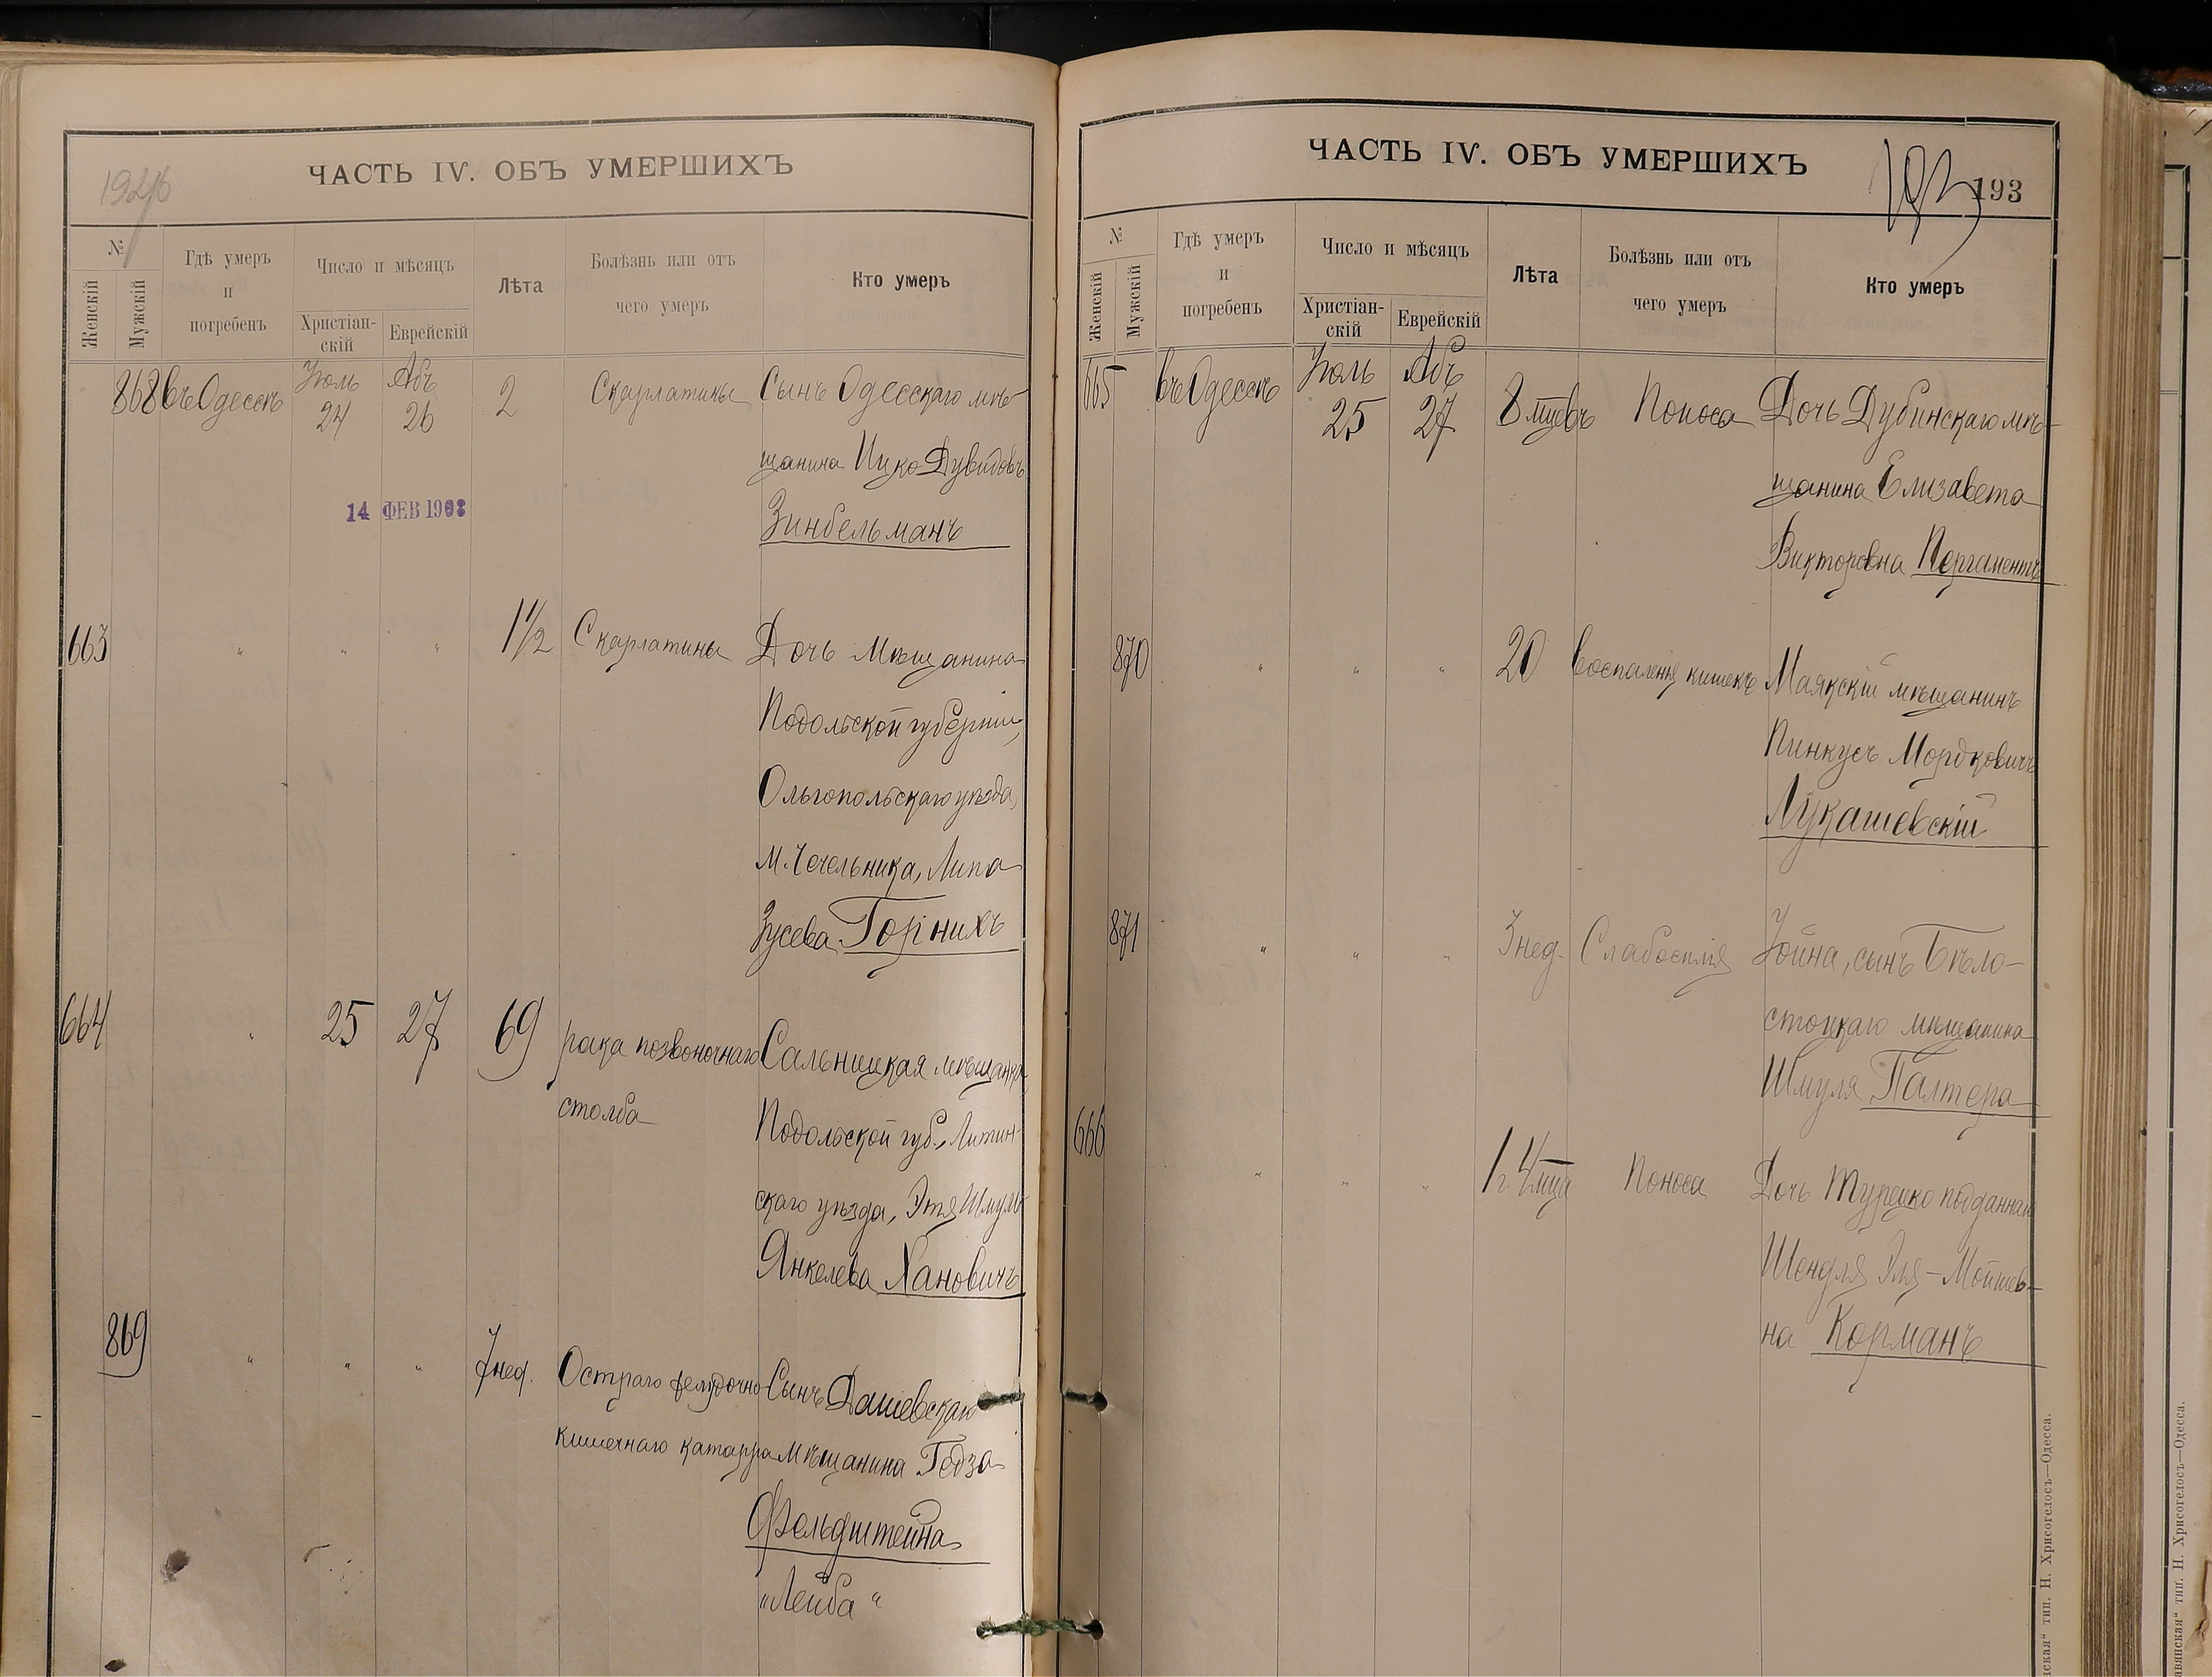 1926
ЧАСТЬ IV. ОБЪ УМЕРШИХЪ
№
Женскій
Мужскій
Гдѣ умеръ
и
погребенъ
Число и мѣсяцъ
Христіан-
скій
Еврейскій
Лѣта
Болѣзнь или отъ
чего умеръ
Кто умеръ
868 въ Одессѣ Іюль 24 Абъ 26 2 Скарлатины Сынъ Одесскаго мѣ-
щанина Ицко Дувидовъ
14 ФЕВ 1908
Зинбельманъ
663 " " " 1½ Скарлатины Дочь мѣщанина
Подольской губерніи,
Ольгопольскаго уѣзда,
м. Чечельника, Липа
Зусева Горнихъ
664 " 25 27 69 рака позвоночнаго Сальницкая мѣщанка
столба Подольской губ., Литин-
скаго уѣзда, Этя Шмуль
Янкелева Хановичъ
869 " " " 7 нед. Остраго желудочно Сынъ Дашевскаго
кишечнаго катарра мѣщанина Гедза
Фельдштейна
"Лейба"
ЧАСТЬ IV. ОБЪ УМЕРШИХЪ
193
№
Женскій
Мужскій
Гдѣ умеръ
и
погребенъ
Число и мѣсяцъ
Христіан-
скій
Еврейскій
Лѣта
Болѣзнь или отъ
чего умеръ
Кто умеръ
665 въ Одессѣ Іюль 25 Абъ 27 8 мцевъ Поноса Дочь Дубинскаго мѣ-
щанина Елизавета
Викторовна Пергаментъ
870 " " " 20 Воспаленія кишекъ Маякскій мѣщанинъ
Пинкусъ Мордковичъ
Лукашевскій
871 " " " 3 нед. Слабосилія Іойна, сынъ Бѣло-
стоцкаго мѣщанина
Шмуля Палтера
666 " " " 1 г. 4 мца Поноса Дочь Турецко подданнаго
Шендля Эля-Мойшев-
на Корманъ
тип. Н. Хрисогелосъ—Одесса.
тип. Н. Хрисогелосъ—Одесса.